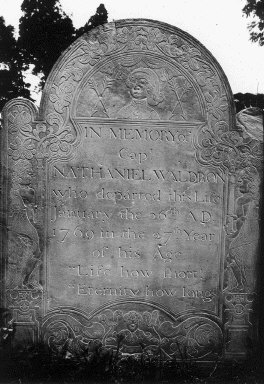 IN MEMORY of
Capt
NATHANIEL WALDRON
who departed this Life
January the 26th AD
1769 in the 27th Year
of his Age
"Life how short!
"Eternity how long